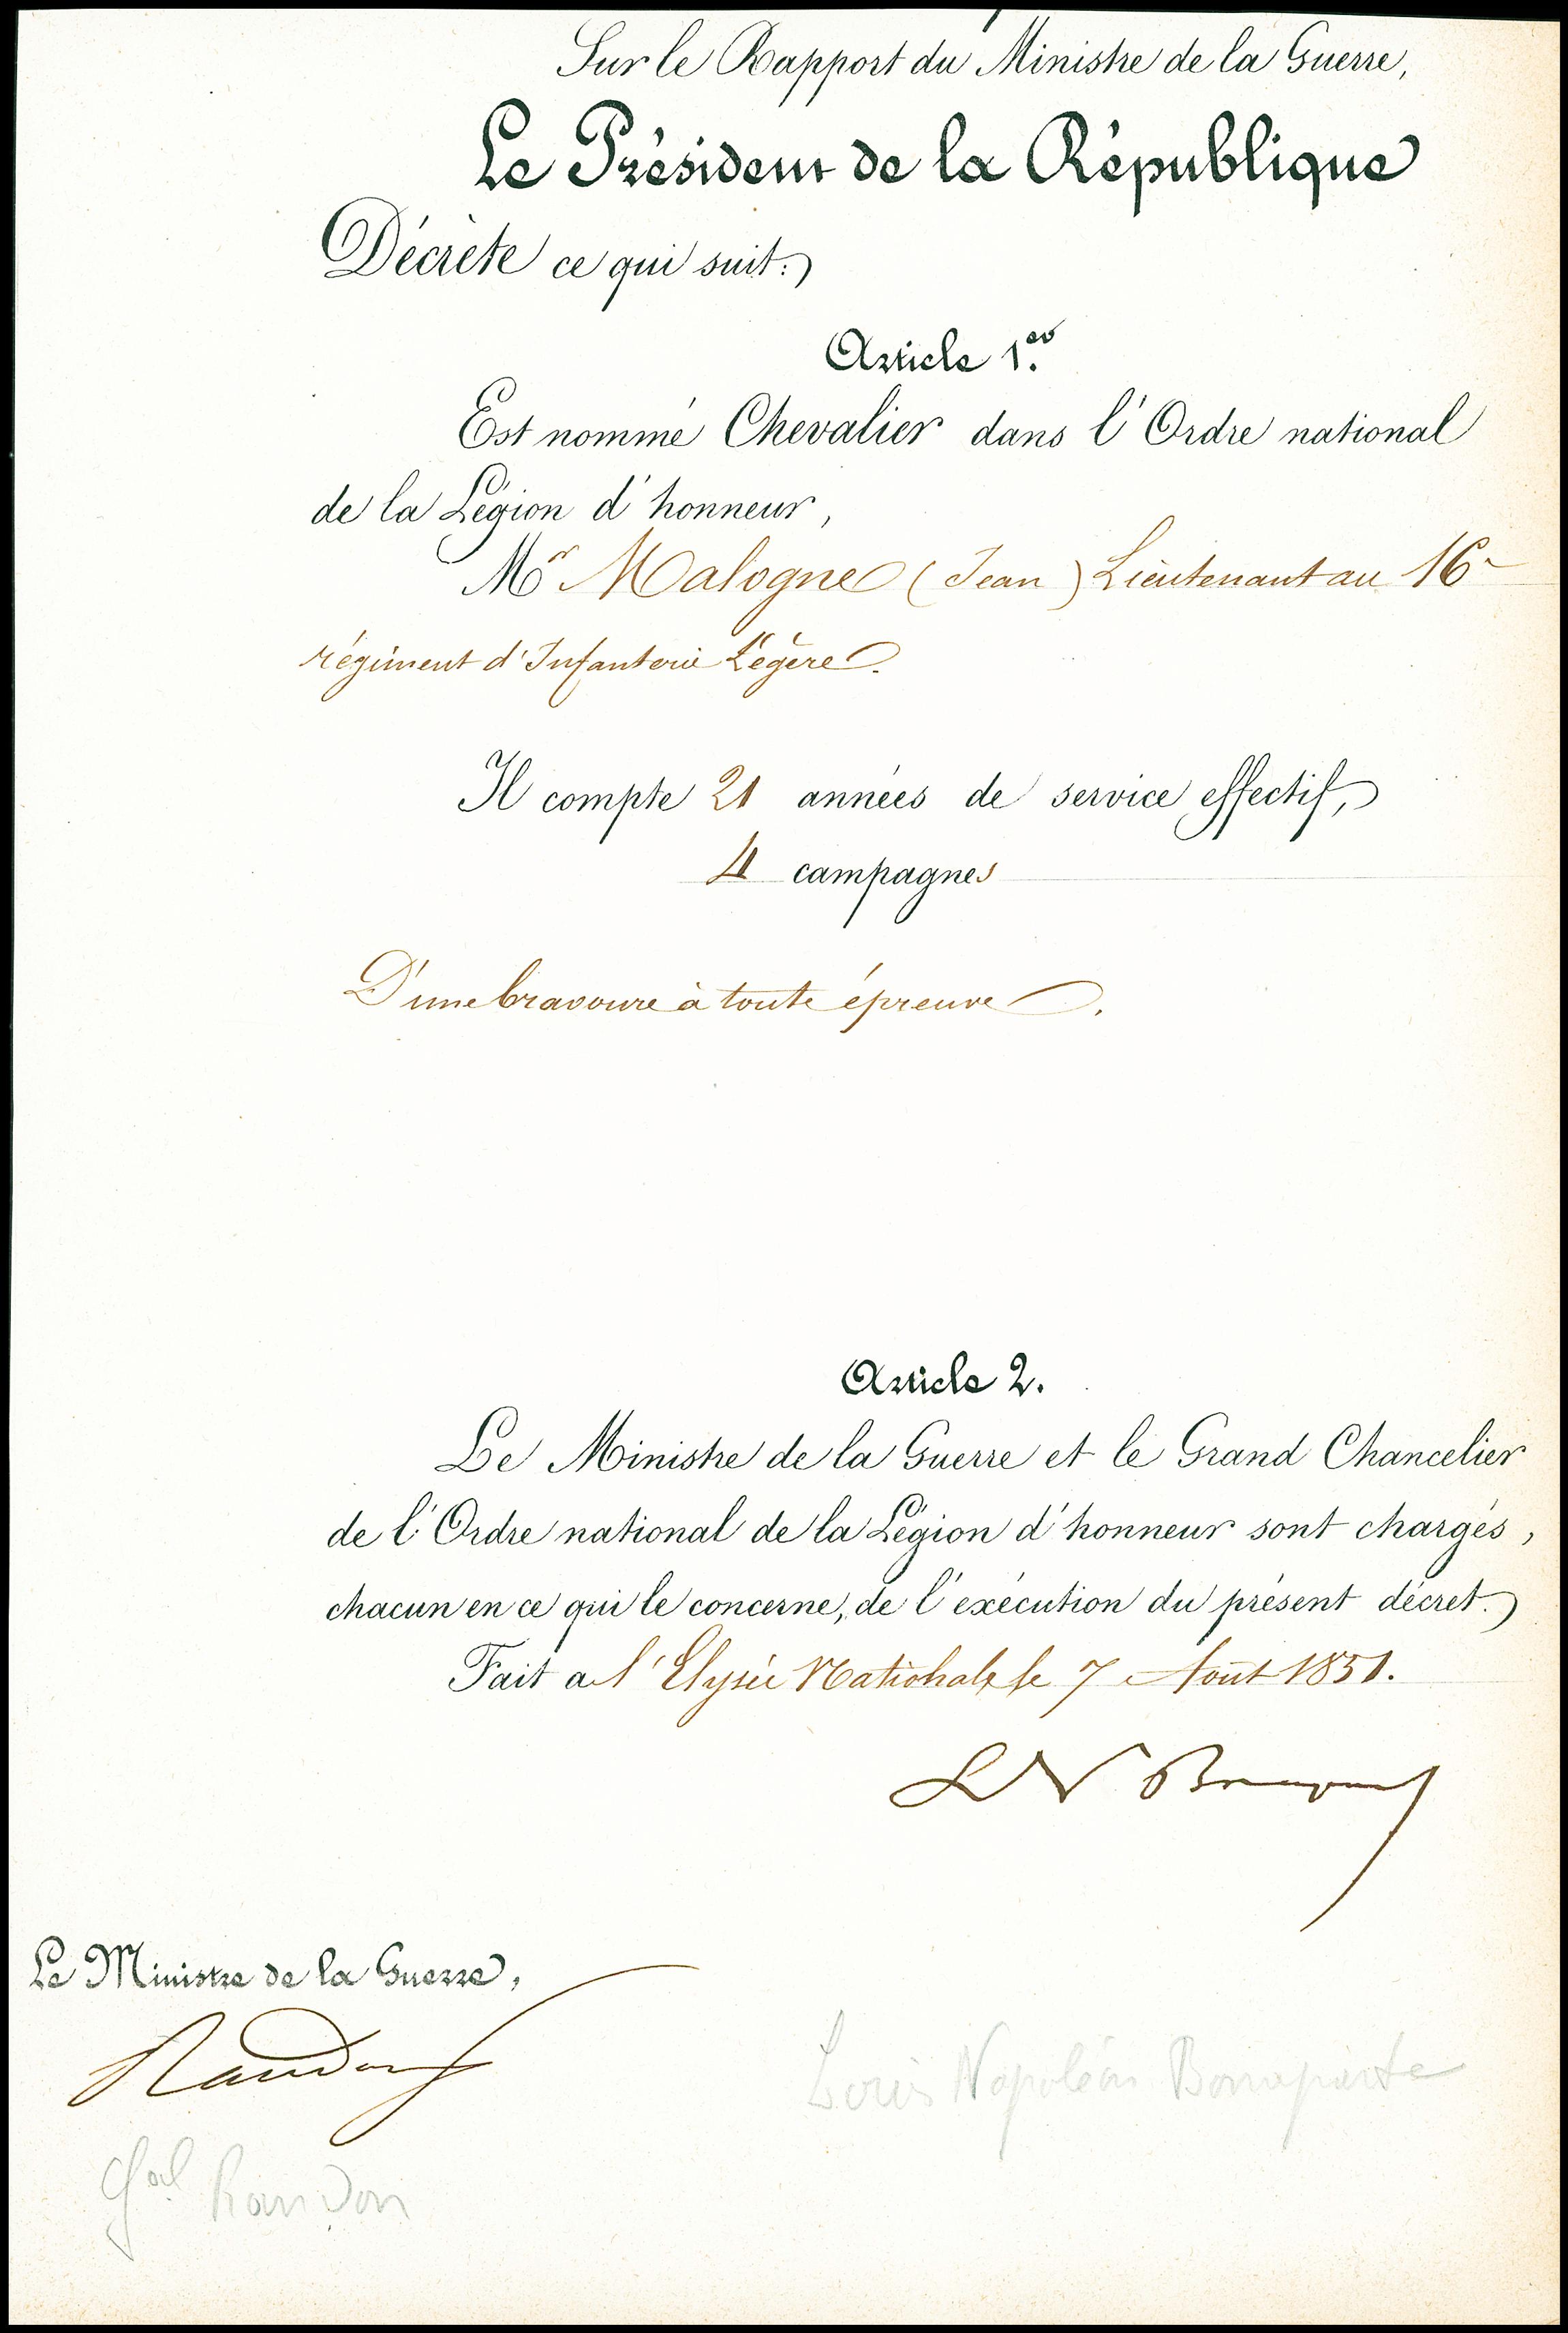 Sur le Rapport du Ministre de la Guerre,
Le Président de la République
Décrète ce qui suit:
Article 1.er
Est nommé Chevalier dans l'Ordre national
de la Légion d'honneur,
Mr Malogne (Jean) Lieutenant au 16e
régiment d'Infanterie Légère.
Il compte 21 années de service effectif,
4 campagnes
D'une bravoure à toute épreuve.
Article 2.
Le Ministre de la Guerre et le Grand Chancelier
de l'Ordre national de la Légion d'honneur sont chargés,
chacun en ce qui le concerne, de l'exécution du présent décret.
Fait a l'Elysée National, le 7 Août 1851.
LN Bonaparte
Le Ministre de la Guerre,
Randon
Louis Napoléon Bonaparte
Gal Randon